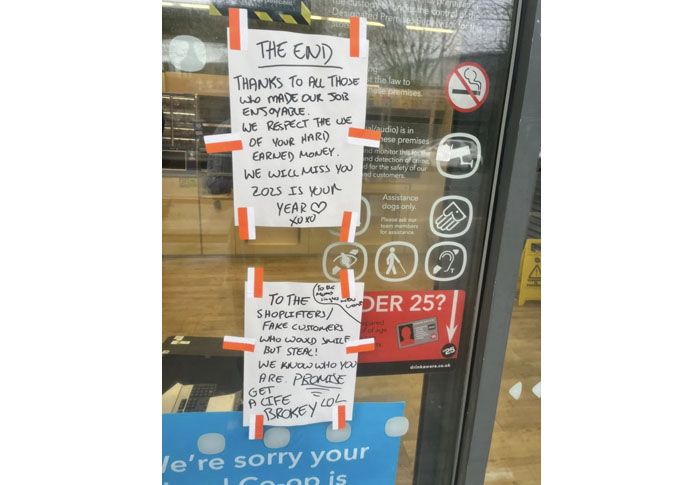 THE END
THANKS TO ALL THOSE
WHO MADE OUR JOB
ENJOYABLE.
WE RESPECT THE USE
OF YOUR HARD
EARNED MONEY.
WE WILL MISS YOU
2025 IS YOUR
YEAR ♡
XOXO
TO THE
SHOPLIFTERS/
FAKE CUSTOMERS
WHO WOULD SMILE
BUT STEAL!
WE KNOW WHO YOU
ARE. PROMISE
GET
A LIFE
BROKEY LOL
the law to
premises.
audio) is in
these premises
and monitor this for the
and detection of
for the safety of our
and customers.
Assistance
dogs only.
Please ask our
team members
for assistance.
DER 25?
of age
drinkaware.co.uk
25
e're sorry your
Co-op is